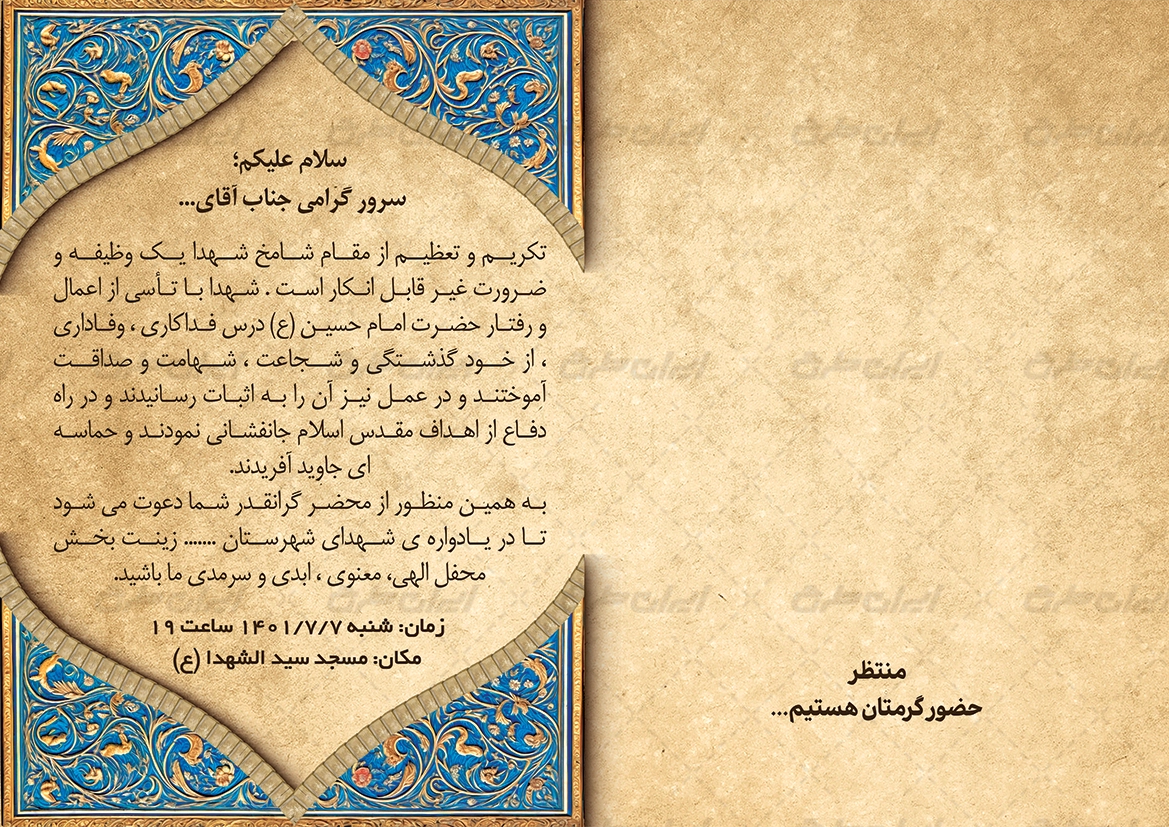 سلام علیکم؛
سرور گرامی جناب آقای...
تکریم و تعظیم از مقام شامخ شهدا یک وظیفه و
ضرورت غیر قابل انکار است . شهدا با تأسی از اعمال
و رفتار حضرت امام حسین (ع) درس فداکاری ، وفاداری
، از خود گذشتگی و شجاعت ، شهامت و صداقت
آموختند و در عمل نیز آن را به اثبات رسانیدند و در راه
دفاع از اهداف مقدس اسلام جانفشانی نمودند و حماسه
ای جاوید آفریدند.
به همین منظور از محضر گرانقدر شما دعوت می شود
تا در یادواره ی شهدای شهرستان ....... زینت بخش
محفل الهی، معنوی ، ابدی و سرمدی ما باشید.
زمان: شنبه ۱۴۰۱/۷/۷ ساعت ۱۹
مکان: مسجد سید الشهدا (ع)
منتظر
حضور گرمتان هستیم...
ایران طرح